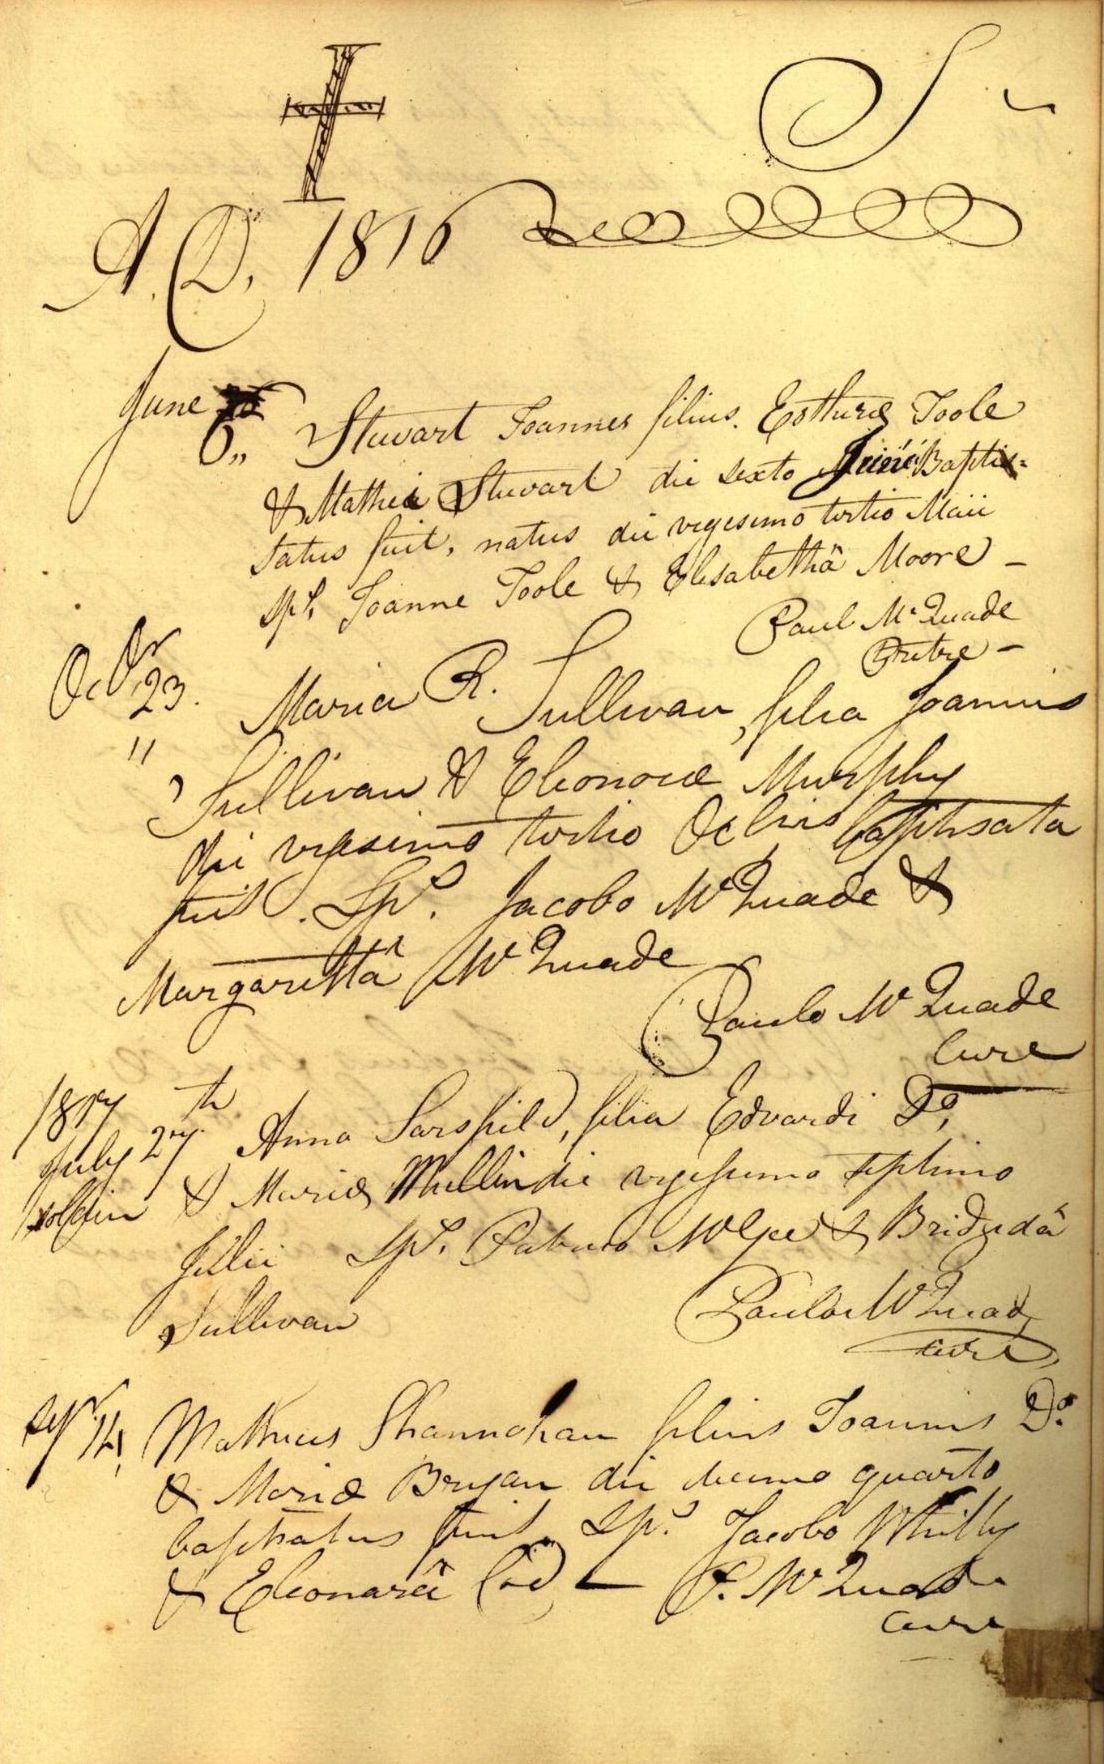 S
A. D. 1816
June 6,, Stuvart Joannes filius. Estheræ Toole
& Mathei Stuvart die sexto Junii Baptiz-
tatus fuit, natus die vigesimo tertio Maii
Sps. Joanne Toole & Elisabethâ Moore –
Paul Mc Quade
Octbr 23. Maria R. Sullivan, filia Joannis
" Sullivan & Eleonoræ Murphy
die vigesimo tertio Octbris baptisata
fuit. Sps. Jacobo Mc Quade &
Margarettâ Mc Quade
Paulo Mc Quade
Cure
1817
July 27th Anna Sarsfild, filia Edvardi Do,
& Mariæ Mullin die vigessimo septimo
Julii Sps. Patricio McGee & Bridgidâ
Sullivan
Paulo Mc Quade
Cure
Sepr 14, Matheus Shannahan filius Joannis Do.
& Mariæ Bryan die decimo quarto
baptisatus fuit. Sps. Jacobo
& Eleonarâ — P. Mc Quade
Cure